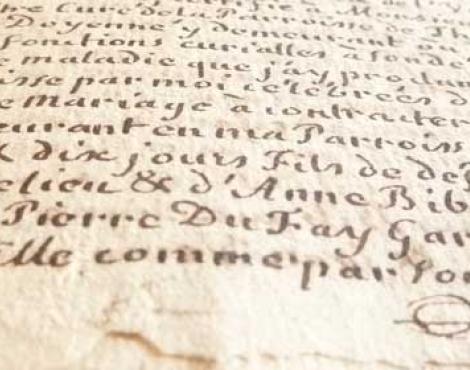 tre Curé de la Parroisse de Th
Doyenné y demeurant ou
fonctions curialles à fonde
e maladie que j'ay produit
isse par moi celebrées d
e mariage à contracter
eurant en ma Parroiss
& dix jours Fils de def
elieu & d'Anne Bib
Pierre Du Fay Gar
Elle comme par son